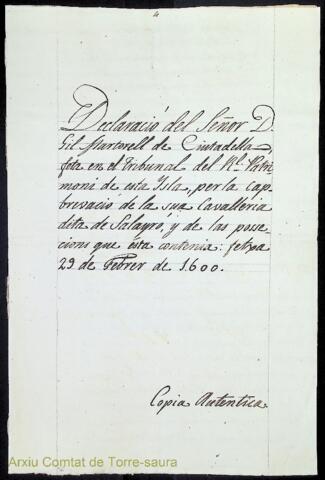 4
Declaració del Señor D.
Gil Martorell de Ciutadella,
feta en el Tribunal del Rl. Patri
moni de esta Isla, per la cap
brevació de la sua Cavalleria
dita de Salayró, y de las posse
cions que esta contenia: fetxa
29 de Febrer de 1600.
Copia Autentica.
Arxiu Comtat de Torre-saura